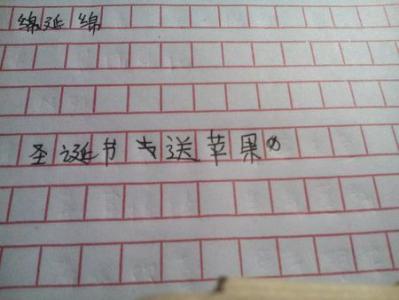 绵延绵
圣诞节 送苹果